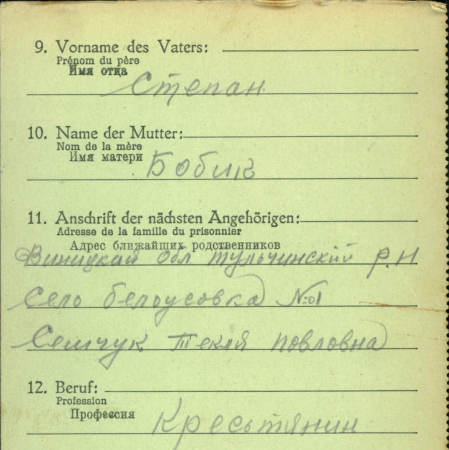 9. Vorname des Vaters:
Prénom du père
Имя отца
Степан
10. Name der Mutter:
Nom de la mère
Имя матери
Бобик
11. Anschrift der nächsten Angehörigen:
Adresse de la famille du prisonnier
Адрес ближайших родственников
Виницкай Обл Тульчинский р.н
Село белоусовка №1
Семчук Текля повловна
12. Beruf:
Profession
Профессия
Кресьтянин